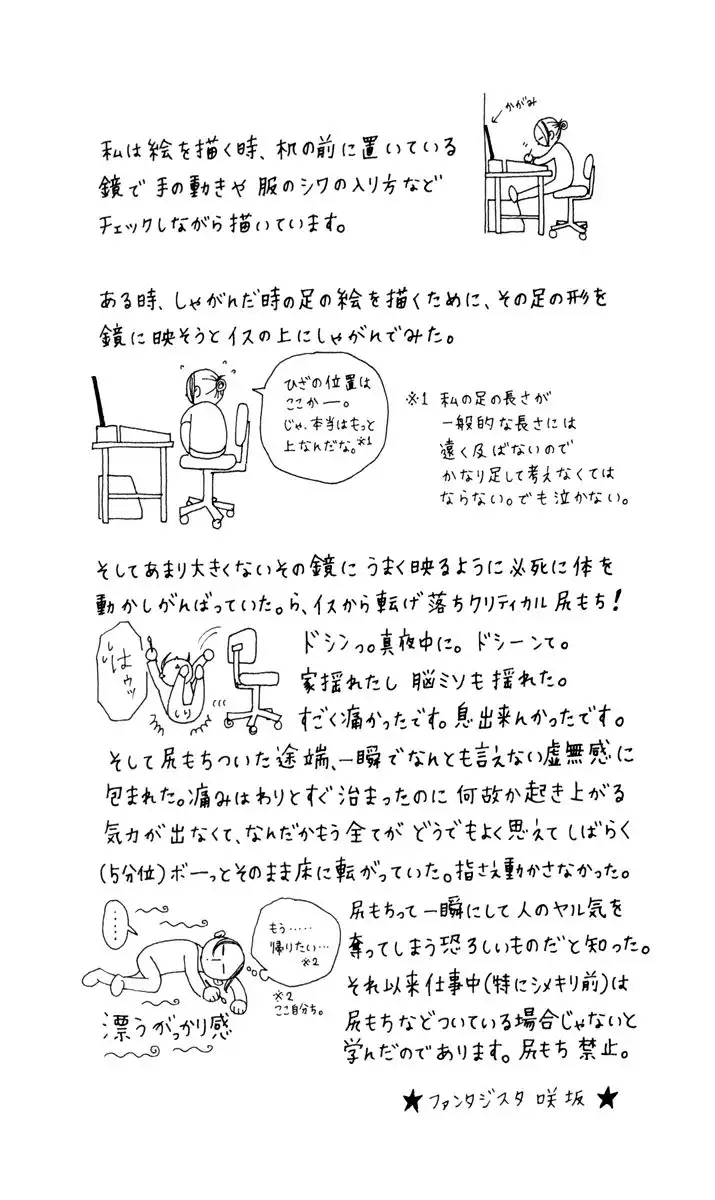 かがみ
私は絵を描く時、机の前に置いている
鏡で手の動きや服のシワの入り方など
チェックしながら描いています。
ある時、しゃがんだ時の足の絵を描くために、その足の形を
鏡に映そうとイスの上にしゃがんでみた。
ひざの位置は
ここかー。
じゃ、本当はもっと
上なんだな。※1
※1 私の足の長さが
一般的な長さには
遠く及ばないので
かなり足して考えなくては
ならない。でも泣かない。
そしてあまり大きくないその鏡にうまく映るように必死に体を
動かしがんばっていた。ら、イスから転げ落ちクリティカル尻もち!
はウッ
しり
ドシンっ。真夜中に。ドシーンて。
家揺れたし脳ミソも揺れた。
すごく痛かったです。息出来んかったです。
そして尻もちついた途端、一瞬でなんとも言えない虚無感に
包まれた。痛みはわりとすぐ治まったのに何故か起き上がる
気力が出なくて、なんだかもう全てがどうでもよく思えてしばらく
(5分位)ボーっとそのまま床に転がっていた。指さえ動かさなかった。
‥‥
もう‥‥‥
帰りたい‥‥
※2
※2
ここ自分ち。
漂うがっかり感
尻もちって一瞬にして人のヤル気を
奪ってしまう恐ろしいものだと知った。
それ以来仕事中(特にシメキリ前)は
尻もちなどついている場合じゃないと
学んだのであります。尻もち禁止。
★ファンタジスタ咲坂★